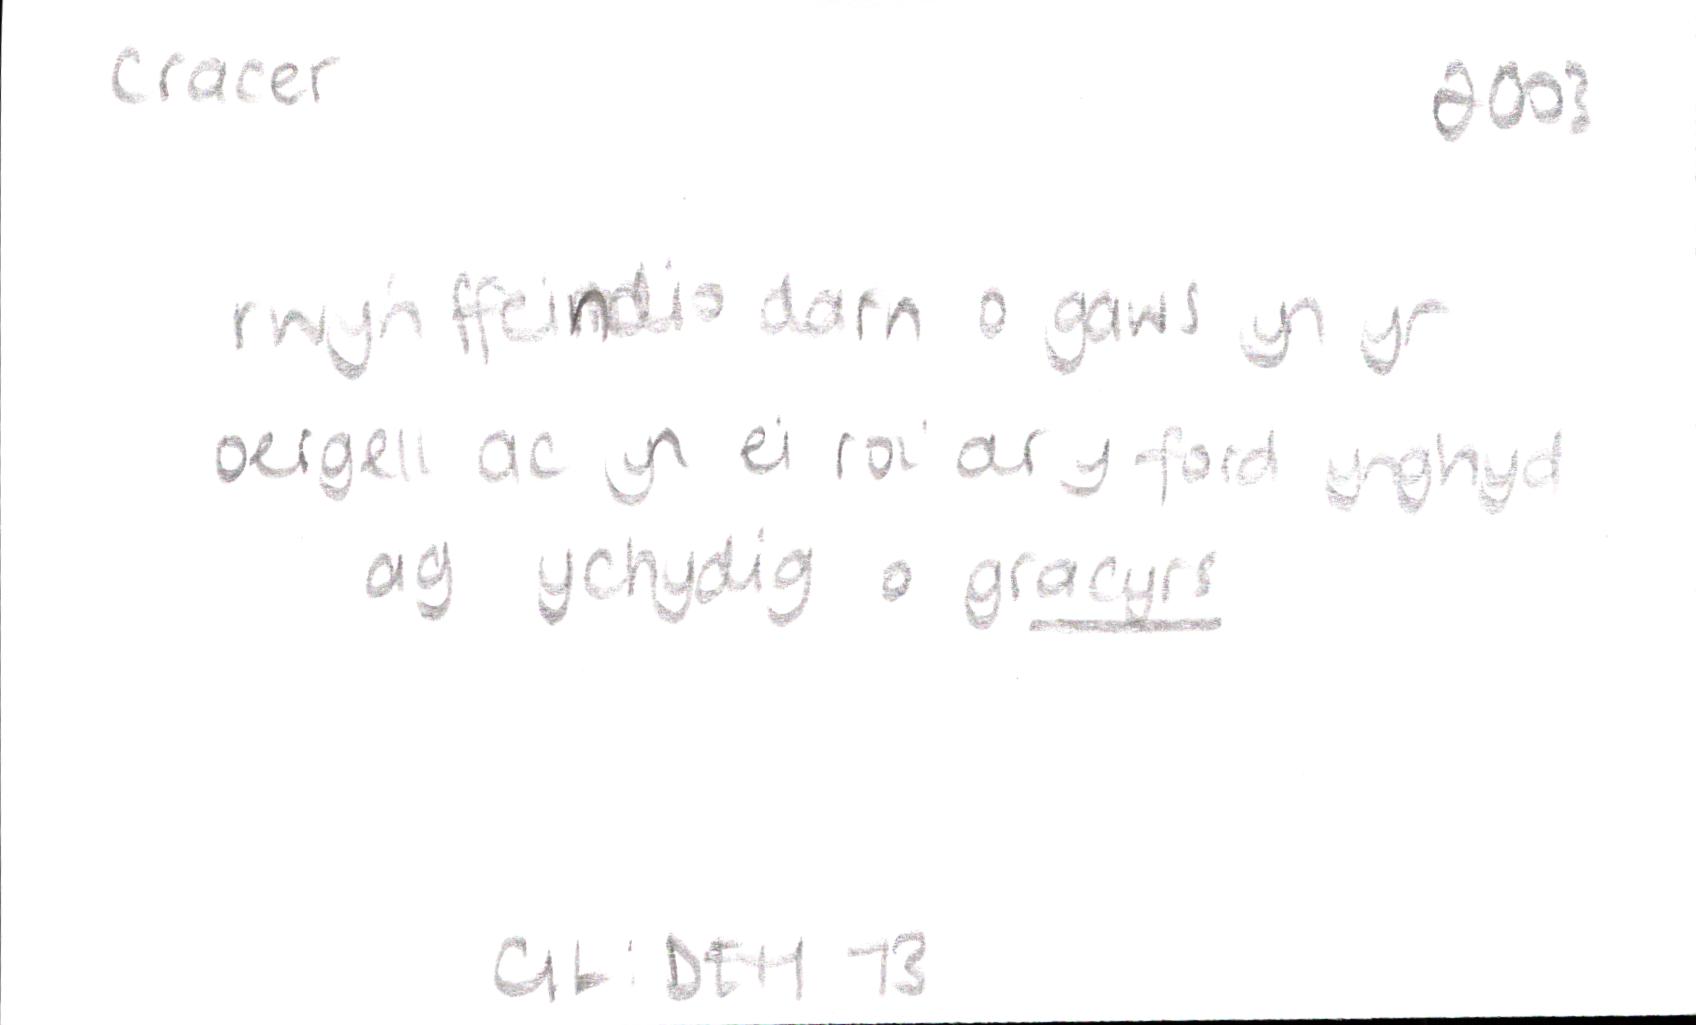 cracer 2003
rwyn ffeindio darn o gaws yn yr
oergell ac yn ei roi ar y ford ynghyd
ag ychydig o gracyrs